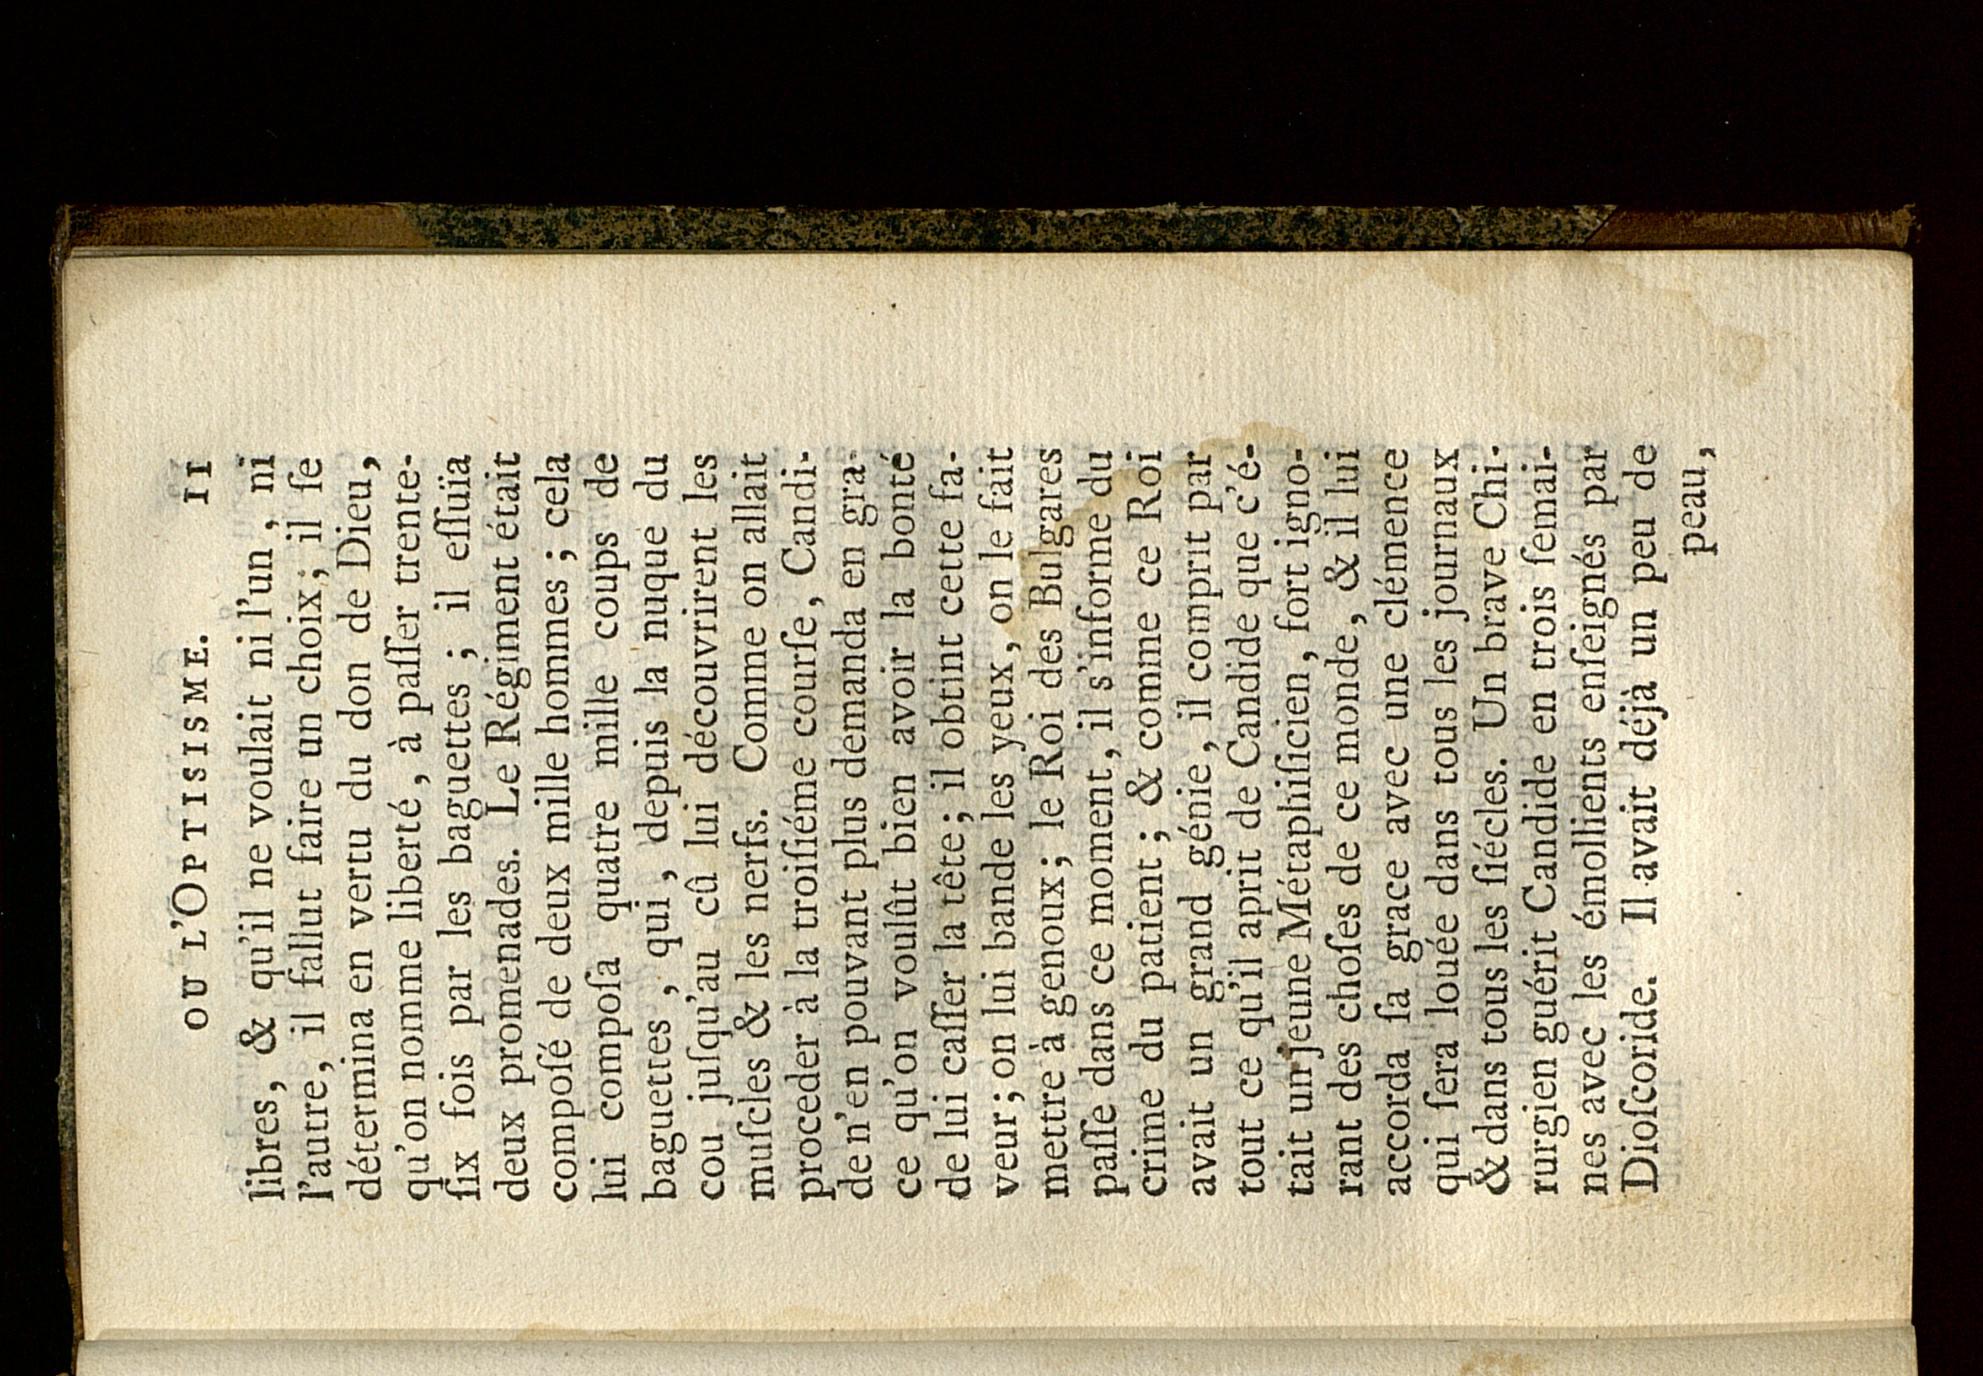 OU L'OPTISISME. II
libres, & qu'il ne voulait ni l'un, ni
l'autre, il fallut faire un choix; il ſe
détermina en vertu du don de Dieu,
qu'on nomme liberté, à paſſer trente-
ſix fois par les baguettes; il eſſuïa
deux promenades. Le Régiment était
compoſé de deux mille hommes; cela
lui compoſa quatre mille coups de
baguettes, qui, depuis la nuque du
cou juſqu'au cû lui découvrirent les
muſcles & les nerfs. Comme on allait
proceder à la troiſiéme courſe, Candi-
de n'en pouvant plus demanda en gra-
ce qu'on voulût bien avoir la bonté
de lui caſſer la tête; il obtint cette fa-
veur; on lui bande les yeux, on le fait
mettre à genoux; le Roi des Bulgares
paſſe dans ce moment, il s'informe du
crime du patient; & comme ce Roi
avait un grand génie, il comprit par
tout ce qu'il aprit de Candide que c'é-
tait un jeune Métaphiſicien, fort igno-
rant des choſes de ce monde, & il lui
accorda ſa grace avec une clémence
qui ſera louée dans tous les journaux
& dans tous les ſiécles. Un brave Chi-
rurgien guérit Candide en trois ſemai-
nes avec les émollients enſeignés par
Dioſcoride. Il avait déjà un peu de
peau,